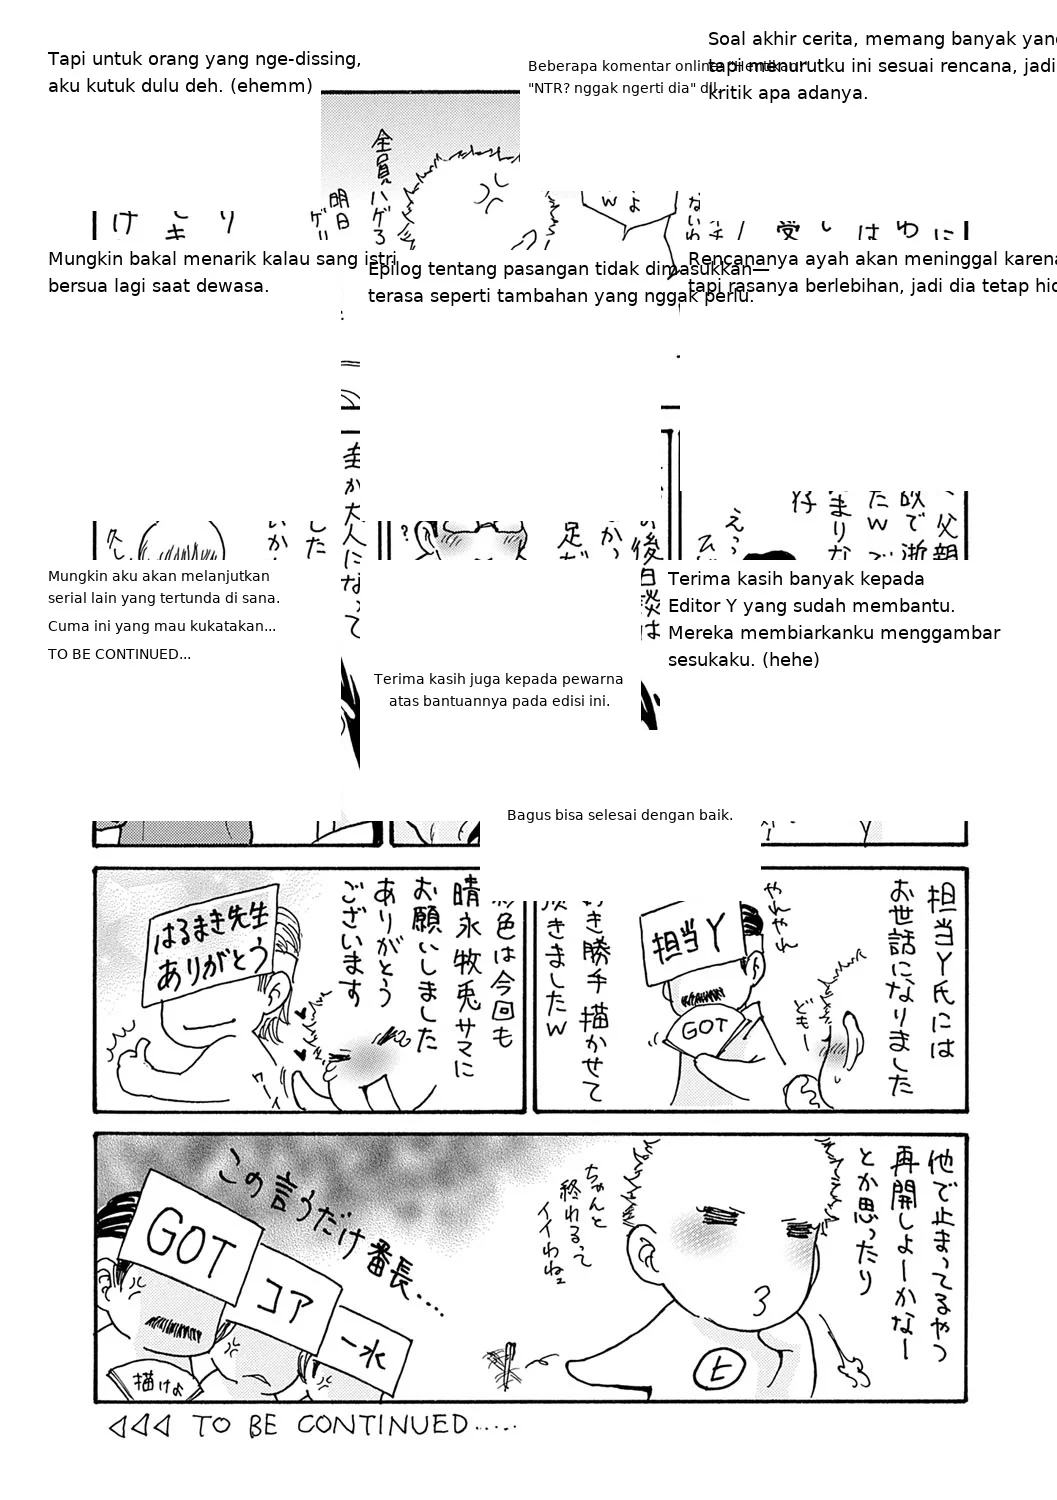 Tapi untuk orang yang nge-dissing,
aku kutuk dulu deh. (ehemm)
Beberapa komentar online
"NTR? nggak ngerti dia" dll.
Soal akhir cerita, memang banyak yang
tapi menurutku ini sesuai rencana, jadi
kritik apa adanya.
全員ハゲろ
明日
Mungkin bakal menarik kalau sang istri
bersua lagi saat dewasa.
Epilog tentang pasangan tidak dimasukkan—
terasa seperti tambahan yang nggak perlu.
Rencananya ayah akan meninggal karena
tapi rasanya berlebihan, jadi dia tetap hid
圭が大人になって
後日談は
父親
Mungkin aku akan melanjutkan
serial lain yang tertunda di sana.
Cuma ini yang mau kukatakan...
TO BE CONTINUED...
Terima kasih juga kepada pewarna
atas bantuannya pada edisi ini.
Terima kasih banyak kepada
Editor Y yang sudah membantu.
Mereka membiarkanku menggambar
sesukaku. (hehe)
Bagus bisa selesai dengan baik.
担当Y氏には
お世話になりました
やれやれ
担当Y
GOT
どもー
き勝手描かせて
きましたw
色は今回も
晴永牧兎サマに
お願いしました
ありがとう
ございます
はるまき先生
ありがとう
ワーイ
他で止まってるやつ
再開しよーかなー
とか思ったり
ちゃんと
終れるって
イイわねェ
ヒ
この言うだけ番長....
GOT
コア
一水
描けよ
TO BE CONTINUED.....